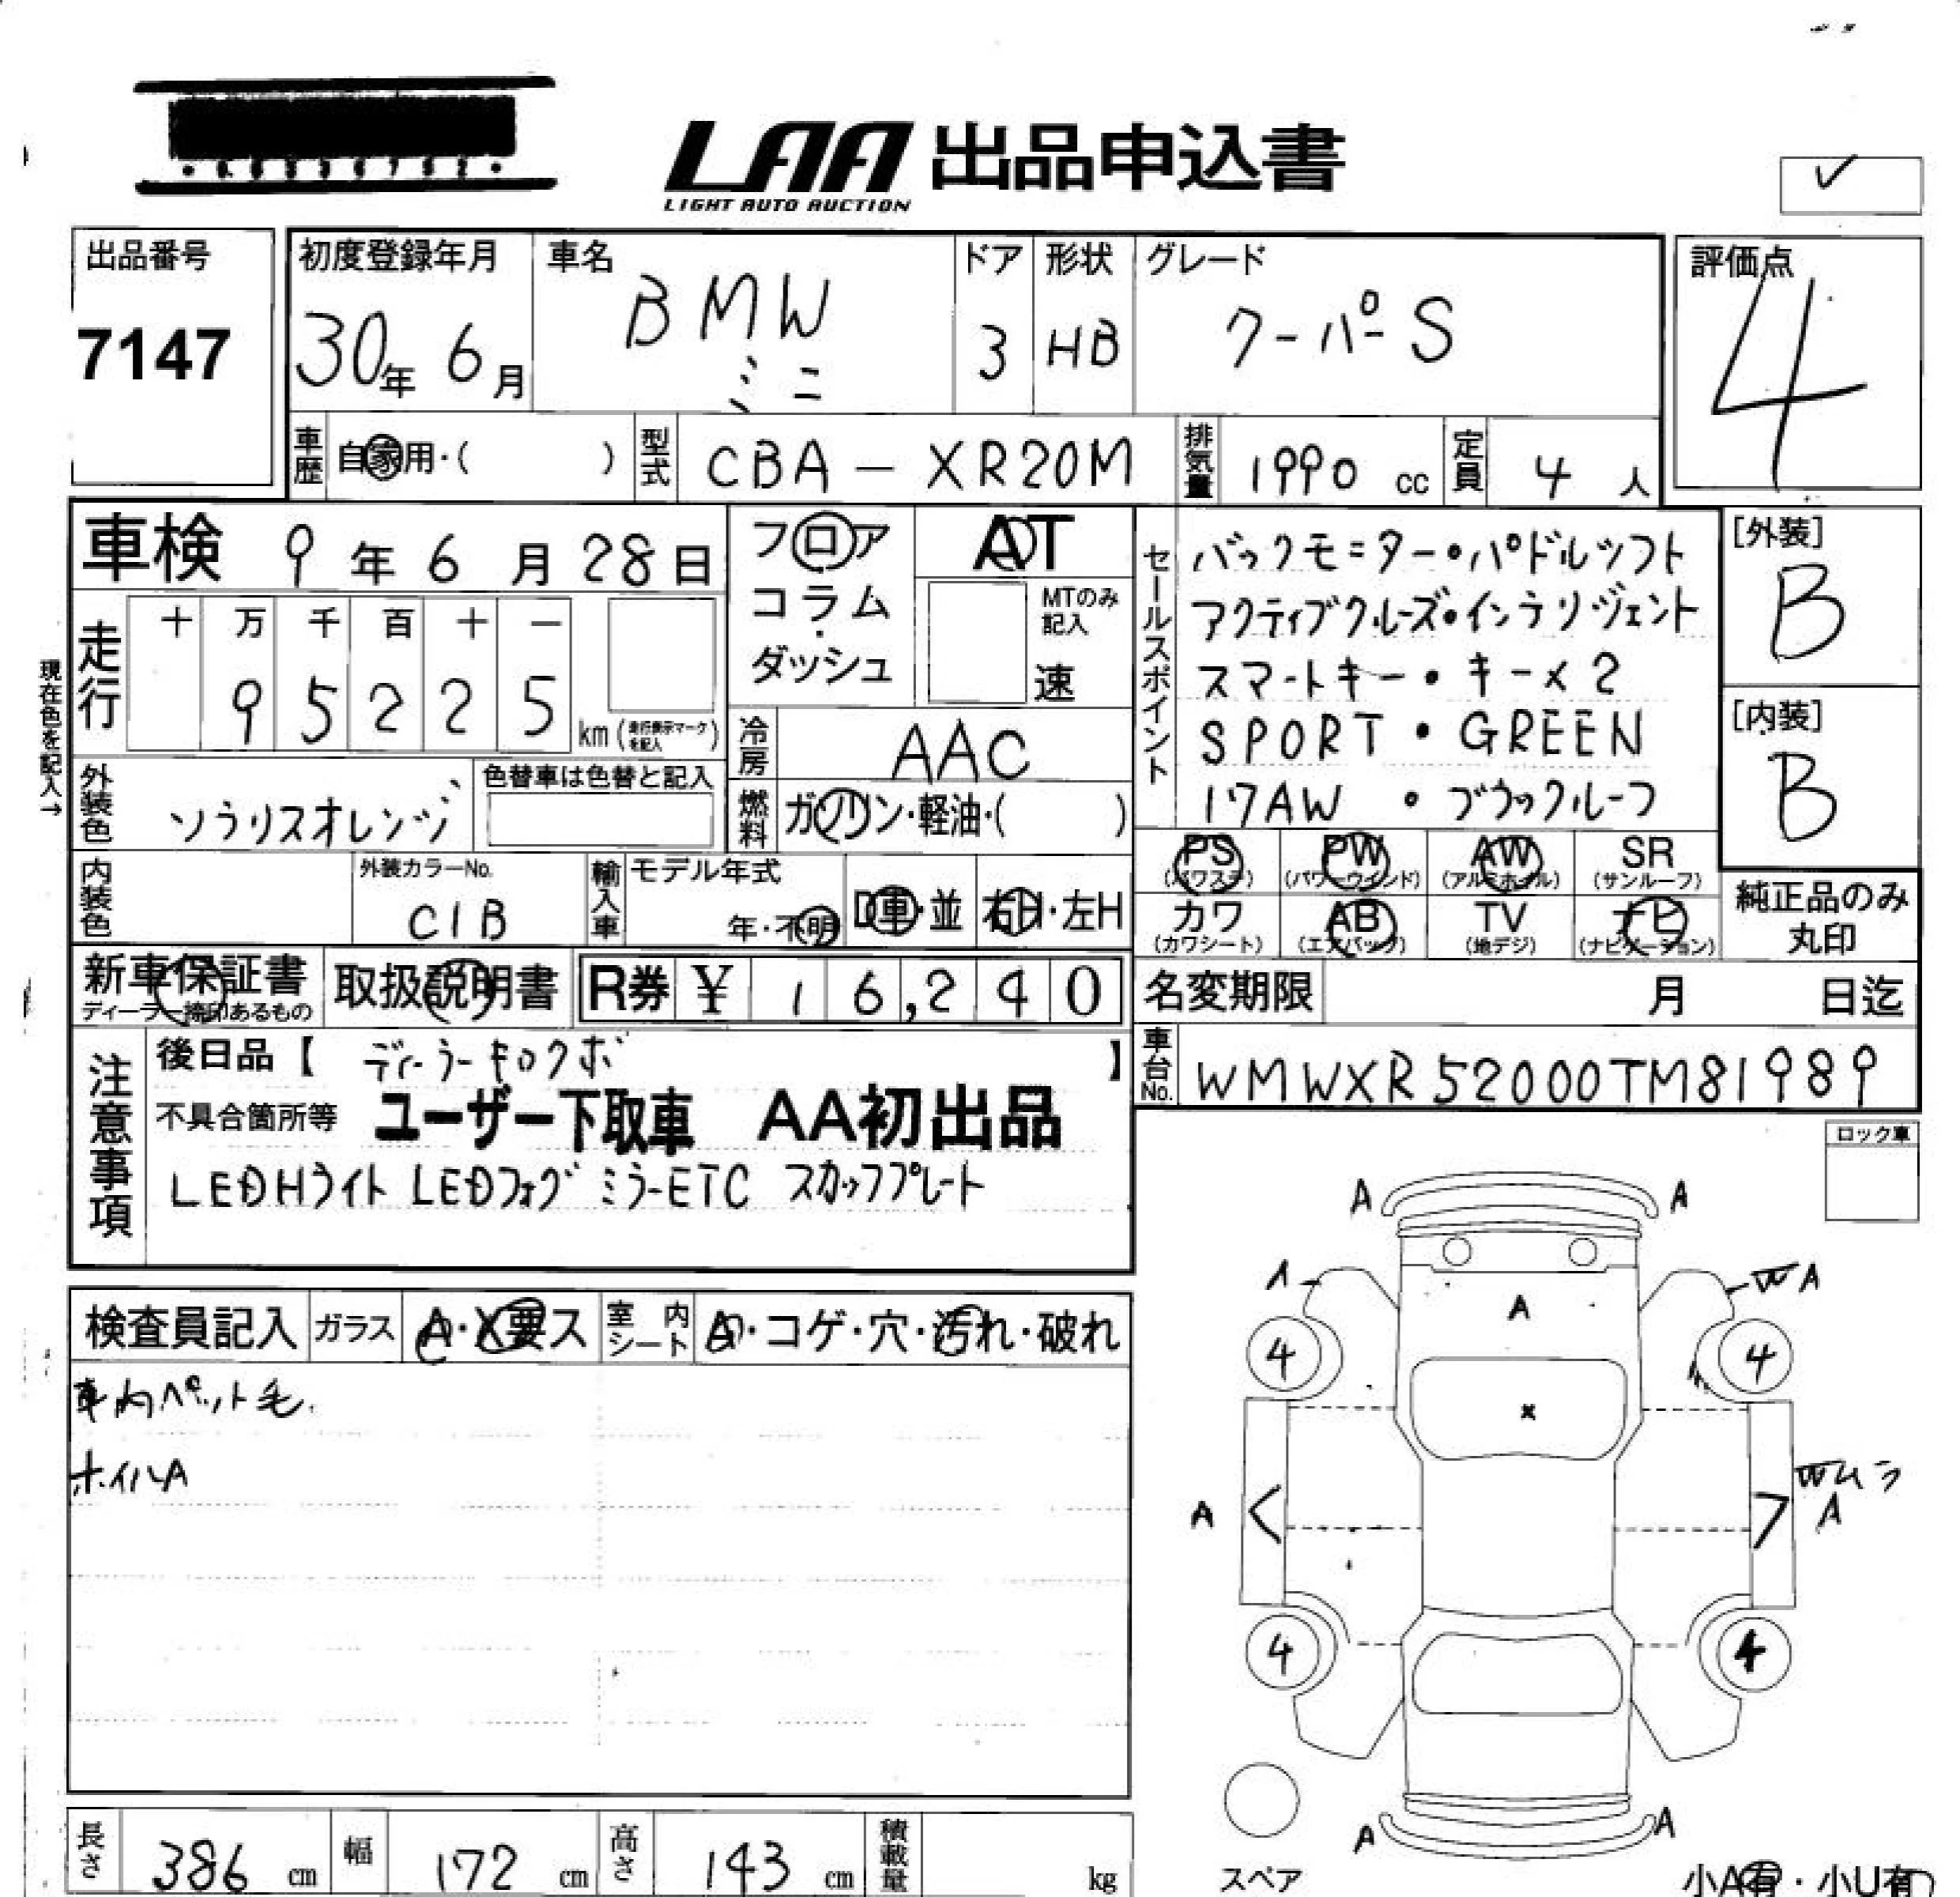 LAA 出品申込書
LIGHT AUTO AUCTION
出品番号
7147
初度登録年月
30年 6月
車名
BMW
ミニ
ドア
3
形状
HB
グレード
クーパーS
評価点
4
車歴 自家用・( )
型式 CBA-XR20M
排気量 1990 cc
定員 4 人
車検 9年 6月 28日
フロア
コラム
・
ダッシュ
AT
MTのみ
記入
速
セールスポイント
バックモニター・パドルシフト
アクティブクルーズ・インテリジェント
スマートキー・キー×2
SPORT・GREEN
17AW ・ブラックルーフ
[外装]
B
[内装]
B
現在色を記入→
走行
十 万 千 百 十 一
9 5 2 2 5
km (走行表示マークを記入)
冷房 AAC
外装色 ソラリスオレンジ
色替車は色替と記入
燃料 ガソリン・軽油・( )
内装色
外装カラーNo.
C1B
輸入車
モデル年式
年・不明
D車・並
右H・左H
PS
(パワステ)
PW
(パワーウインド)
AW
(アルミホイル)
SR
(サンルーフ)
カワ
(カワシート)
AB
(エアバッグ)
TV
(地デジ)
ナビ
(ナビゲーション)
純正品のみ
丸印
新車保証書
ディーラー捺印あるもの
取扱説明書
R券 ¥ 16,240
名変期限 月 日迄
車台No. WMWXR52000TM81989
注意事項
後日品【 ディーラーキロクボ 】
不具合箇所等 ユーザー下取車 AA初出品
LEDHライト LEDフォグ ミラーETC スカッフプレート
ロック車
検査員記入
ガラス A・X要ス
室内シート A・コゲ・穴・汚れ・破れ
車内ペット毛.
ホイルA
A A
A WA
A
4 4
×
Wムラ
A A
4 4
A A
スペア
小A有・小U有
長さ 386 cm
幅 172 cm
高さ 143 cm
積載量 kg